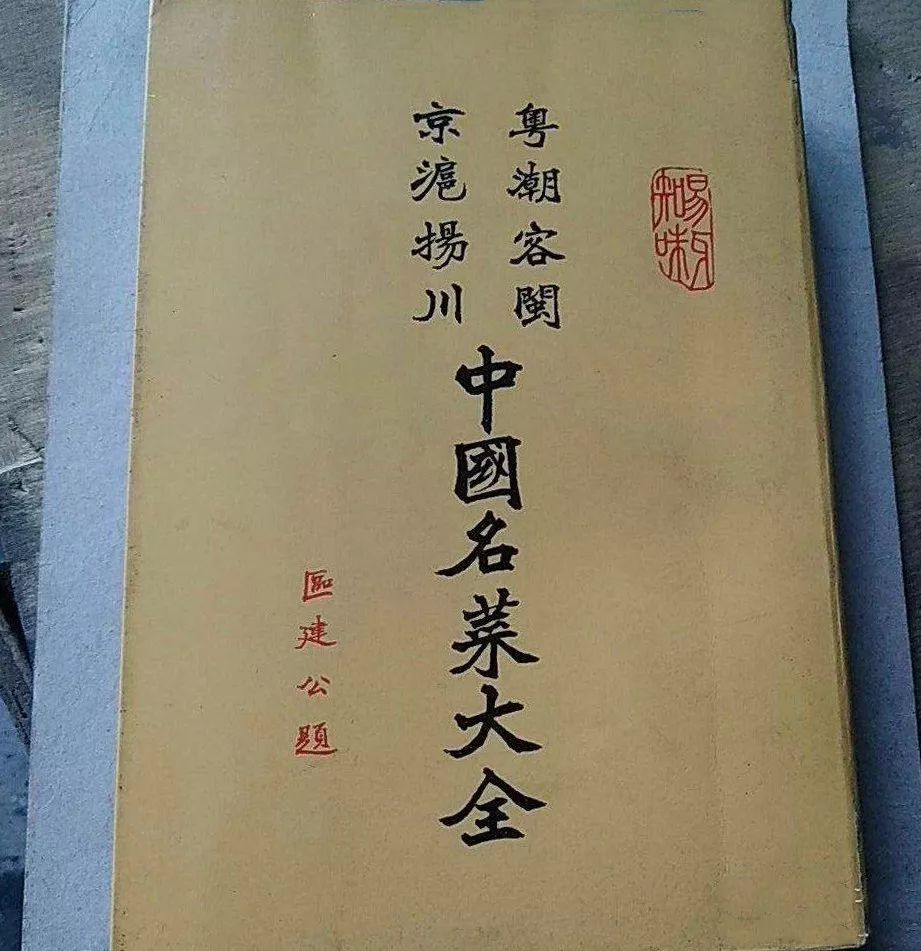 粵潮客閩
京滬揚川
中國名菜大全
區建公題